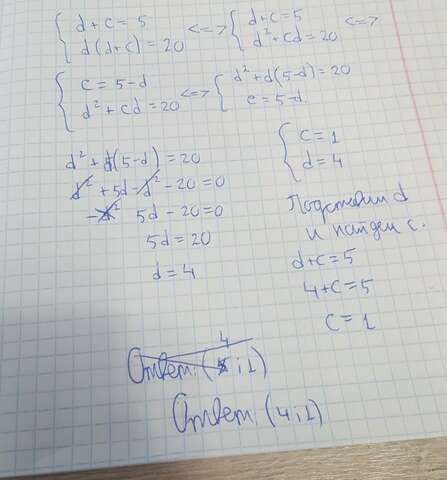 { d + c = 5
d(d+c) = 20 <=> { d+c = 5
d² + cd = 20 <=>
{ c = 5-d
d² + cd = 20 <=> { d² + d(5-d) = 20
c = 5-d
d² + d(5-d) = 20
d² + 5d - d² - 20 = 0
5d - 20 = 0
5d = 20
d = 4
{ c = 1
d = 4
Подставим d
и найдем c.
d+c = 5
4+c = 5
c = 1
4
Ответ: ( ; 1)
Ответ: (4; 1)